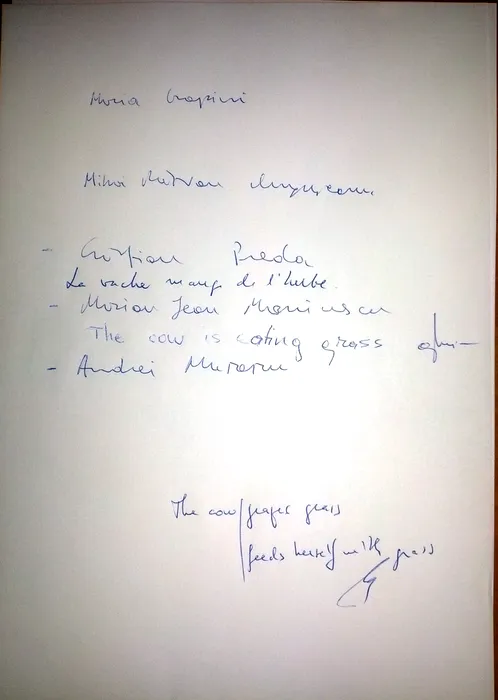 Maria Grapini
Mihai Răzvan Ungureanu
- Cristian Preda
La vache mange de l'herbe.
- Marian Jean Marinescu
The cow is eating grass
- Andrei Muraru
The cow grapes grass
feeds herself with grass